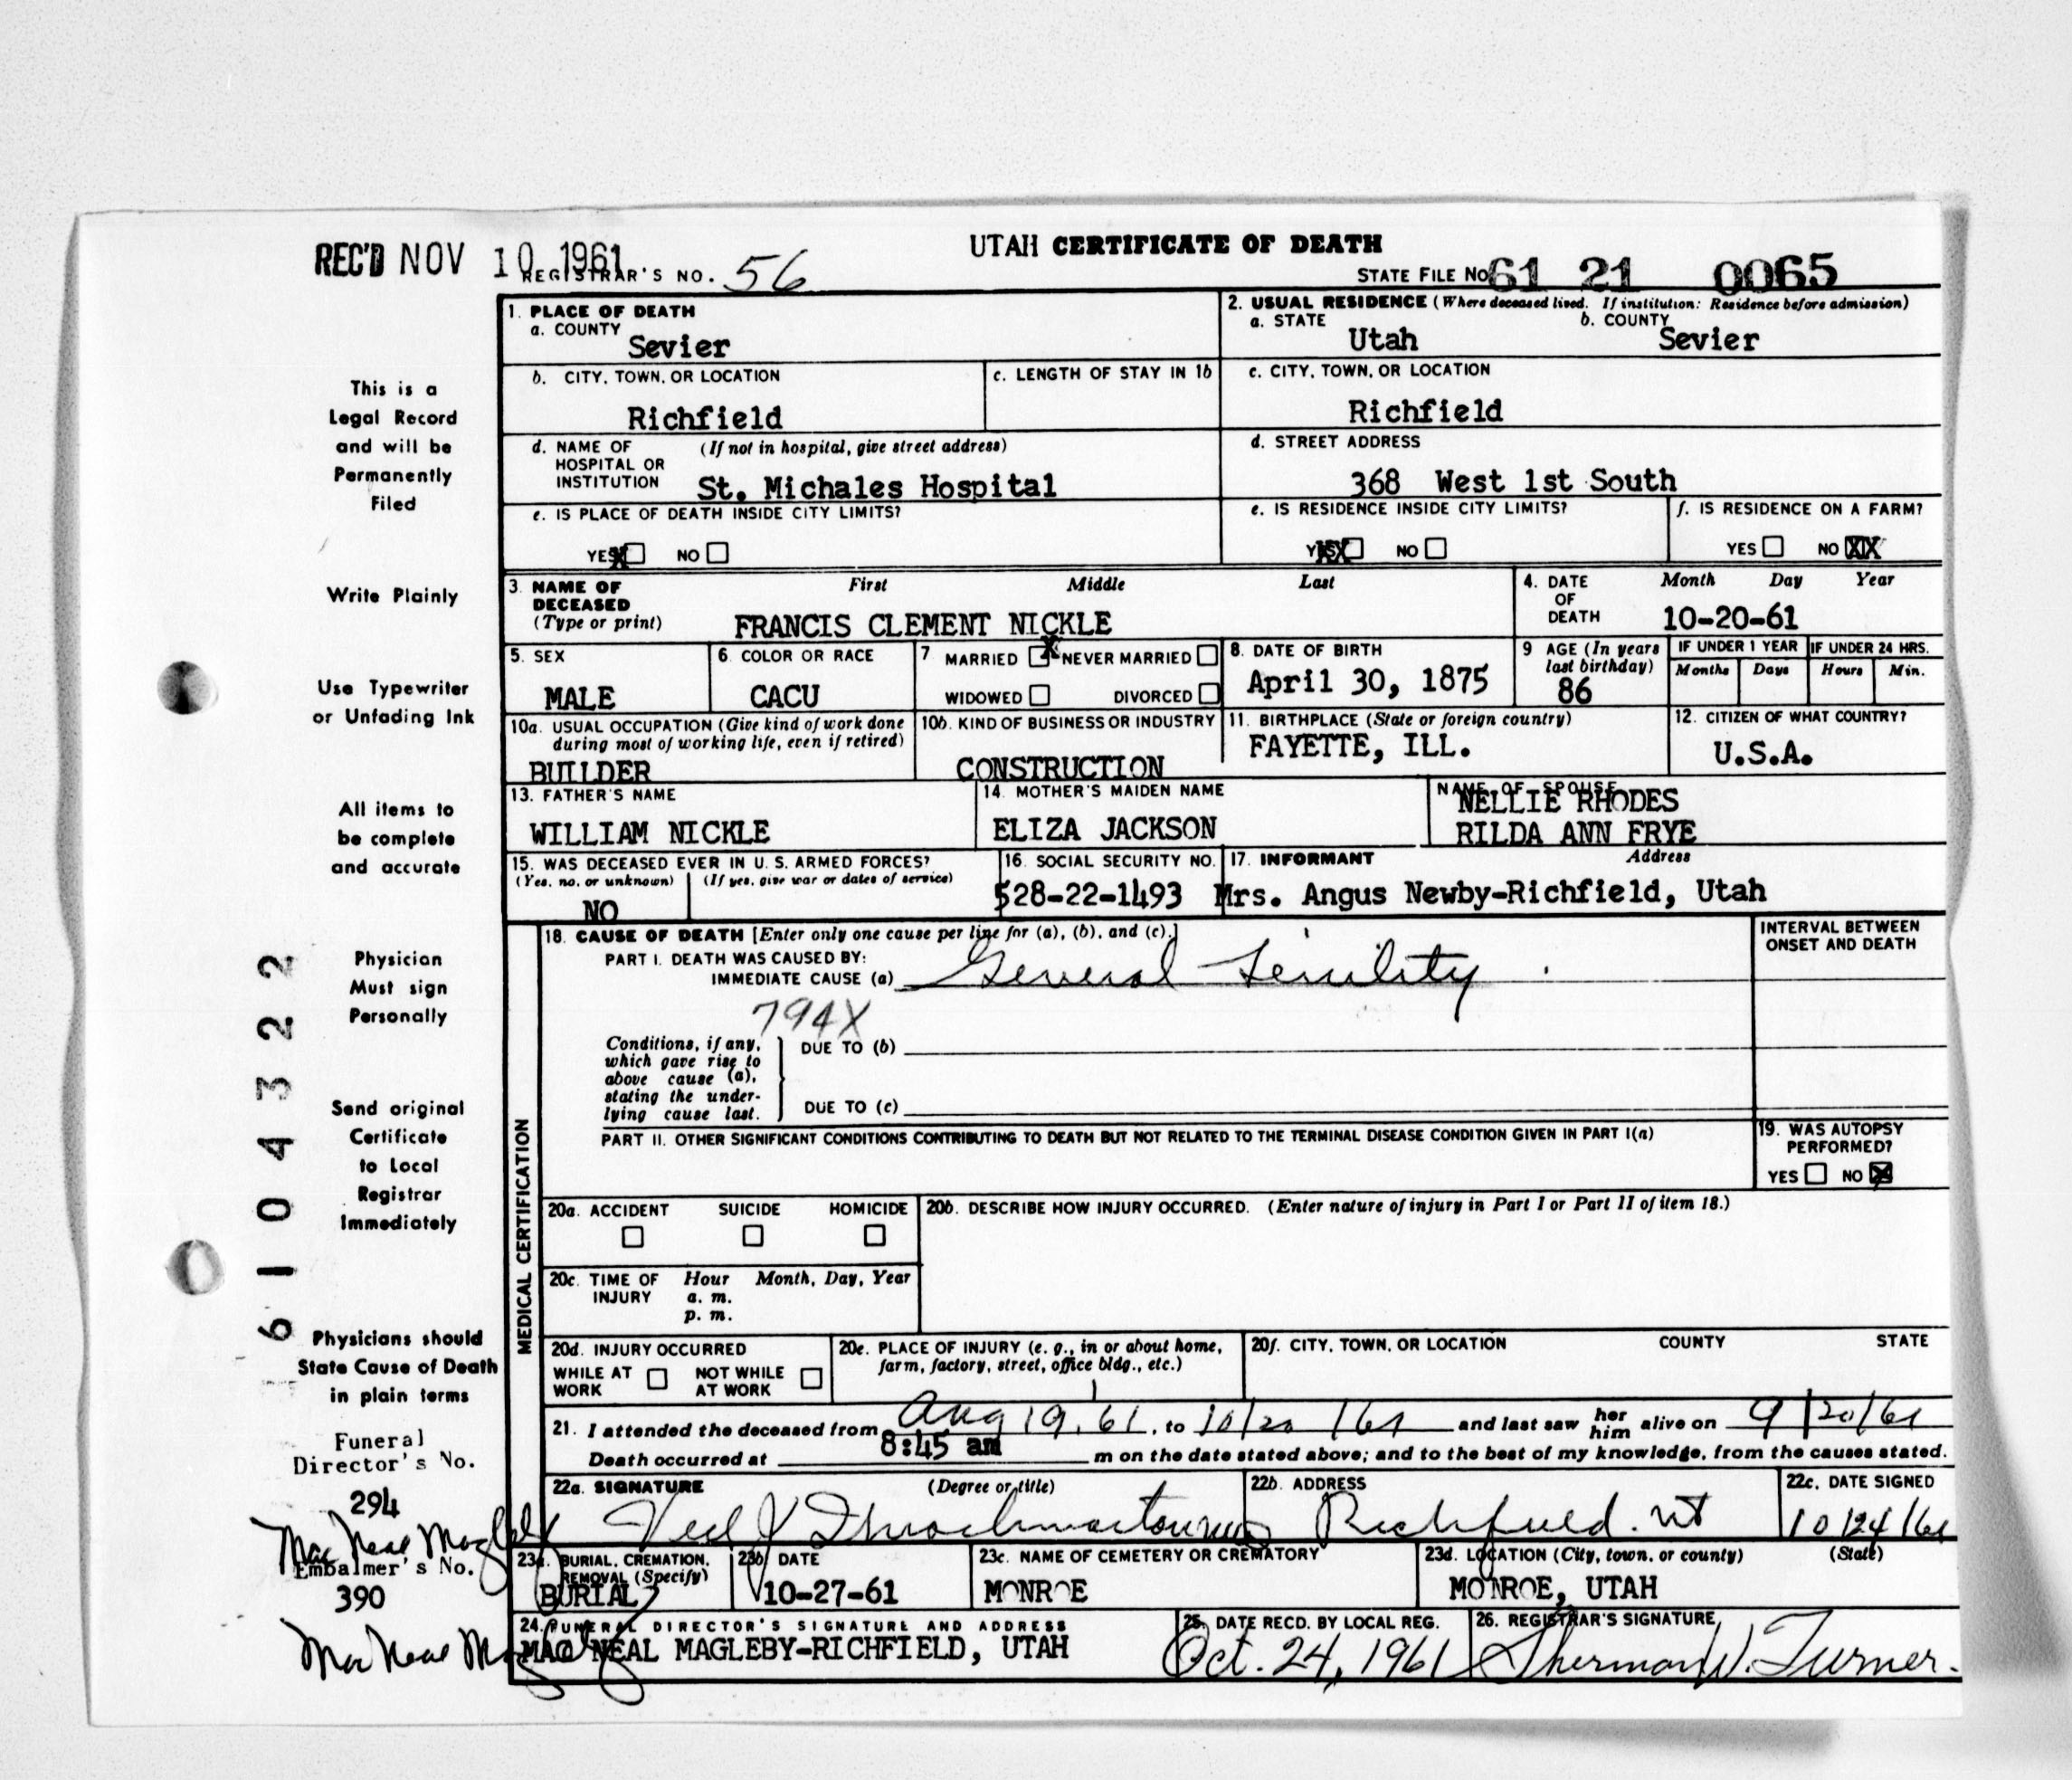 REC'D NOV 10 1961
UTAH CERTIFICATE OF DEATH
REGISTRAR'S NO. 56
STATE FILE NO. 61 21 0065
1. PLACE OF DEATH
a. COUNTY
Sevier
2. USUAL RESIDENCE (Where deceased lived. If institution: Residence before admission)
a. STATE b. COUNTY
Utah Sevier
b. CITY, TOWN, OR LOCATION
Richfield
c. LENGTH OF STAY IN 1b
c. CITY, TOWN, OR LOCATION
Richfield
d. NAME OF HOSPITAL OR INSTITUTION (If not in hospital, give street address)
St. Michales Hospital
d. STREET ADDRESS
368 West 1st South
e. IS PLACE OF DEATH INSIDE CITY LIMITS?
YES X NO
e. IS RESIDENCE INSIDE CITY LIMITS?
YES XX NO
f. IS RESIDENCE ON A FARM?
YES NO XX
3. NAME OF DECEASED (Type or print)
First Middle Last
FRANCIS CLEMENT NICKLE
4. DATE OF DEATH
Month Day Year
10-20-61
5. SEX
MALE
6. COLOR OR RACE
CACU
7 MARRIED X NEVER MARRIED
WIDOWED DIVORCED
8. DATE OF BIRTH
April 30, 1875
9 AGE (In years last birthday)
86
IF UNDER 1 YEAR
Months Days
IF UNDER 24 HRS.
Hours Min.
10a. USUAL OCCUPATION (Give kind of work done during most of working life, even if retired)
BUILDER
10b. KIND OF BUSINESS OR INDUSTRY
CONSTRUCTION
11. BIRTHPLACE (State or foreign country)
FAYETTE, ILL.
12. CITIZEN OF WHAT COUNTRY?
U.S.A.
13. FATHER'S NAME
WILLIAM NICKLE
14. MOTHER'S MAIDEN NAME
ELIZA JACKSON
NAME OF SPOUSE
NELLIE RHODES
RILDA ANN FRYE
15. WAS DECEASED EVER IN U. S. ARMED FORCES?
(Yes, no, or unknown) (If yes, give war or dates of service)
NO
16. SOCIAL SECURITY NO.
528-22-1493
17. INFORMANT Address
Mrs. Angus Newby-Richfield, Utah
MEDICAL CERTIFICATION
18. CAUSE OF DEATH [Enter only one cause per line for (a), (b), and (c).]
PART I. DEATH WAS CAUSED BY:
IMMEDIATE CAUSE (a) General Senility
794X
Conditions, if any, which gave rise to above cause (a), stating the underlying cause last.
DUE TO (b)
DUE TO (c)
INTERVAL BETWEEN ONSET AND DEATH
PART II. OTHER SIGNIFICANT CONDITIONS CONTRIBUTING TO DEATH BUT NOT RELATED TO THE TERMINAL DISEASE CONDITION GIVEN IN PART I(a)
19. WAS AUTOPSY PERFORMED?
YES NO X
20a. ACCIDENT SUICIDE HOMICIDE
20b. DESCRIBE HOW INJURY OCCURRED. (Enter nature of injury in Part I or Part II of item 18.)
20c. TIME OF INJURY Hour Month, Day, Year
a. m.
p. m.
20d. INJURY OCCURRED
WHILE AT WORK NOT WHILE AT WORK
20e. PLACE OF INJURY (e. g., in or about home, farm, factory, street, office bldg., etc.)
20f. CITY, TOWN, OR LOCATION COUNTY STATE
21. I attended the deceased from Aug 19, 61, to 10/20/61 and last saw her him alive on 9/20/61
Death occurred at 8:45 am m on the date stated above; and to the best of my knowledge, from the causes stated.
22a. SIGNATURE (Degree or title)
22b. ADDRESS
Richfield. Ut
22c. DATE SIGNED
10/24/61
23a. BURIAL, CREMATION, REMOVAL (Specify)
BURIAL
23b. DATE
10-27-61
23c. NAME OF CEMETERY OR CREMATORY
MONROE
23d. LOCATION (City, town, or county) (State)
MONROE, UTAH
24. FUNERAL DIRECTOR'S SIGNATURE AND ADDRESS
MAC NEAL MAGLEBY-RICHFIELD, UTAH
25. DATE RECD. BY LOCAL REG.
Oct. 24, 1961
26. REGISTRAR'S SIGNATURE
Sherman W. Turner.
This is a
Legal Record
and will be
Permanently
Filed
Write Plainly
Use Typewriter
or Unfading Ink
All items to
be complete
and accurate
Physician
Must sign
Personally
Send original
Certificate
to Local
Registrar
Immediately
Physicians should
State Cause of Death
in plain terms
Funeral
Director's No.
294
Mac Neal Magleby
Embalmer's No.
390
Mac Neal Magleby
6104322